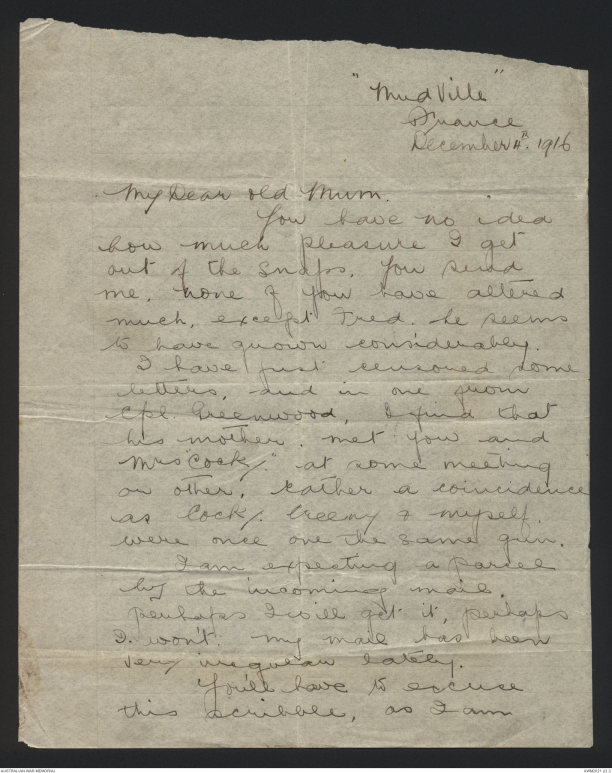 "Mud Ville"
France
December 4th. 1916
My Dear old Mum.
You have no idea
how much pleasure I get
out of the snaps, you send
me, none of you have altered
much, except Fred. he seems
to have grown considerably.
I have just censored some
letters, and in one from
Cpl. Greenwood, I find that
his mother. met you and
Mrs "Cocky." at some meeting
or other, rather a coincidence
as Cocky. Greeny & myself.
were once one the same gun.
I am expecting a parcel
by the incoming mail.
perhaps I will get it, perhaps
I. won't. My mail has been
very irregular lately.
You'll have to excuse
this scribble, as I am
AUSTRALIAN WAR MEMORIAL